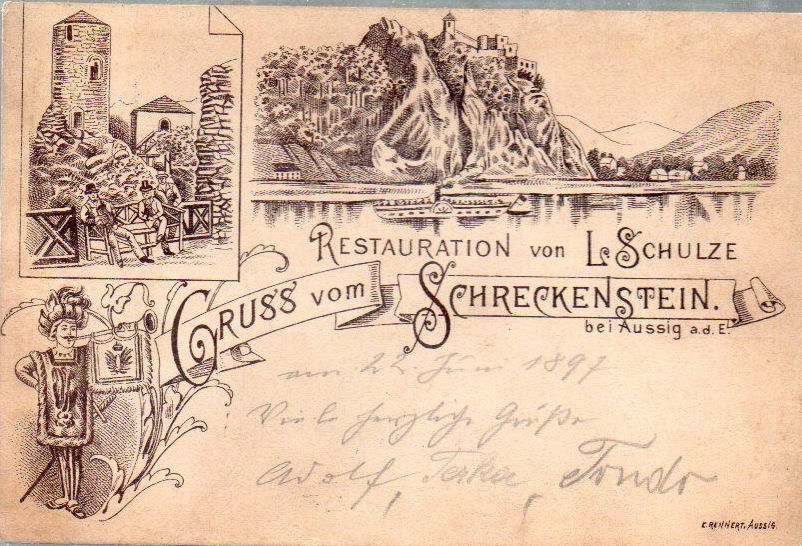 RESTAURATION von L. SCHULZE
GRUSS vom SCHRECKENSTEIN.
bei Aussig a.d.E.
am 22. Juni 1897
Viele herzliche Grüße
Adolf, Terka, Tondo
C. RENNERT, AUSSIG.